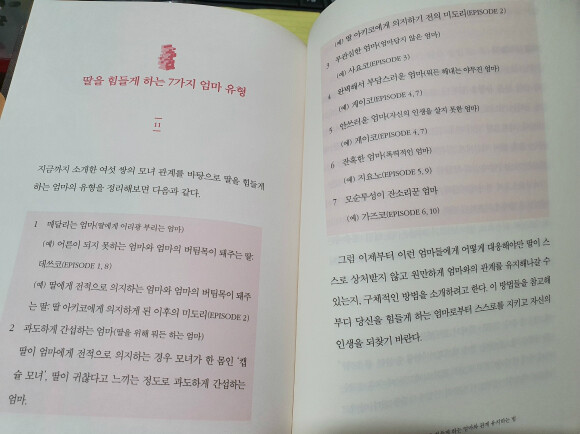 딸을 힘들게 하는 7가지 엄마 유형
11
지금까지 소개한 여섯 쌍의 모녀 관계를 바탕으로 딸을 힘들게
하는 엄마의 유형을 정리해보면 다음과 같다.
1 매달리는 엄마(딸에게 어리광 부리는 엄마)
(예) 어른이 되지 못하는 엄마와 엄마의 버팀목이 돼주는 딸:
테쓰코(EPISODE 1, 8)
(예) 딸에게 전적으로 의지하는 엄마와 엄마의 버팀목이 돼주
는 딸: 딸 아키코에게 의지하게 된 이후의 미도리(EPISODE 2)
2 과도하게 간섭하는 엄마(딸을 위해 뭐든 하는 엄마)
딸이 엄마에게 전적으로 의지하는 경우 모녀가 한 몸인 '캡
슐 모녀', 딸이 귀찮다고 느끼는 정도로 과도하게 간섭하는
엄마.
(예) 딸 아키코에게 의지하기 전의 미도리(EPISODE 2)
3 무관심한 엄마(엄마답지 않은 엄마)
(예) 사요코(EPISODE 3)
4 완벽해서 부담스러운 엄마(뭐든 해내는 야무진 엄마)
(예) 게이코(EPISODE 4, 7)
5 안쓰러운 엄마(자신의 인생을 살지 못한 엄마)
(예) 게이코(EPISODE 4, 7)
6 잔혹한 엄마(폭력적인 엄마)
(예) 지요노(EPISODE 5, 9)
7 모순투성이 잔소리꾼 엄마
(예) 가즈코(EPISODE 6, 10)
그럼 이제부터 이런 엄마들에게 어떻게 대응해야만 딸이 스
스로 상처받지 않고 원만하게 엄마와의 관계를 유지해나갈 수
있는지, 구체적인 방법을 소개하려고 한다. 이 방법들을 참고해
부디 당신을 힘들게 하는 엄마로부터 스스로를 지키고 자신의
인생을 되찾기 바란다.